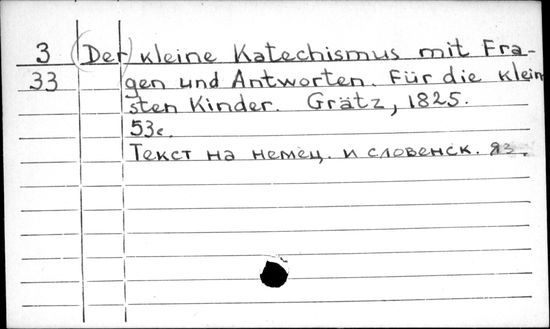 3 (Der) kleine Katechismus mit Fra-
33 gen und Antworten. Für die klein
sten Kinder. Grätz, 1825.
53с.
Текст на немец. и словенск. яз.